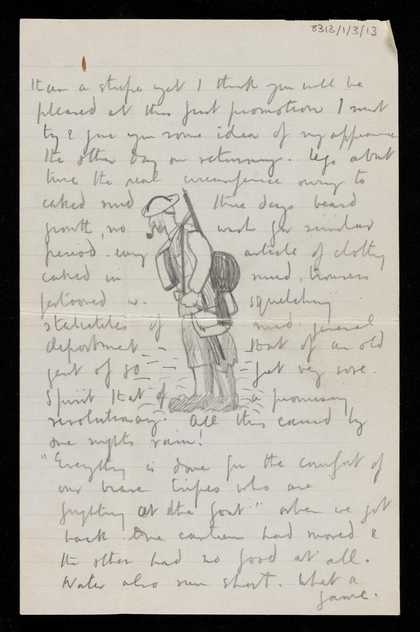 8313/1/3/13
a stripe yet I think you will be
pleased at this first promotion I must
try & give you some idea of my appearance
the other day on returning. legs about
twice the real circumference owing to
caked mud three days beard
growth, no wash for similar
period. every article of clothing
caked in mud, trousers
festooned w. squelching
stalactites of mud. general
deportment that of an old
gent of 80 feet very sore.
Spirit that of a promising
revolutionary. All this caused by
one nights rain!
"Everything is done for the comfort of
our brave who are
fighting at the front" when we got
back One canteen had moved &
the other had no food at all.
Water also run short. What a
game.